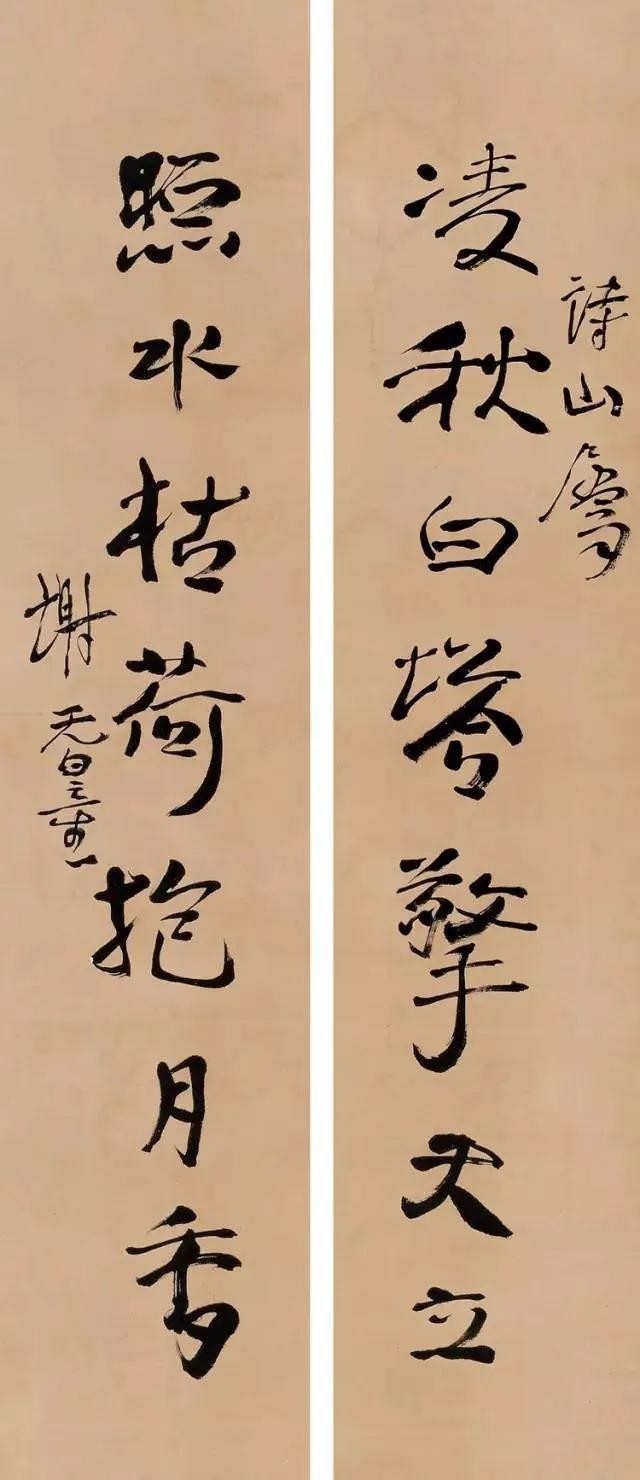 詩山
凌秋白塔擎天立
照水枯荷抱月香
謝无量